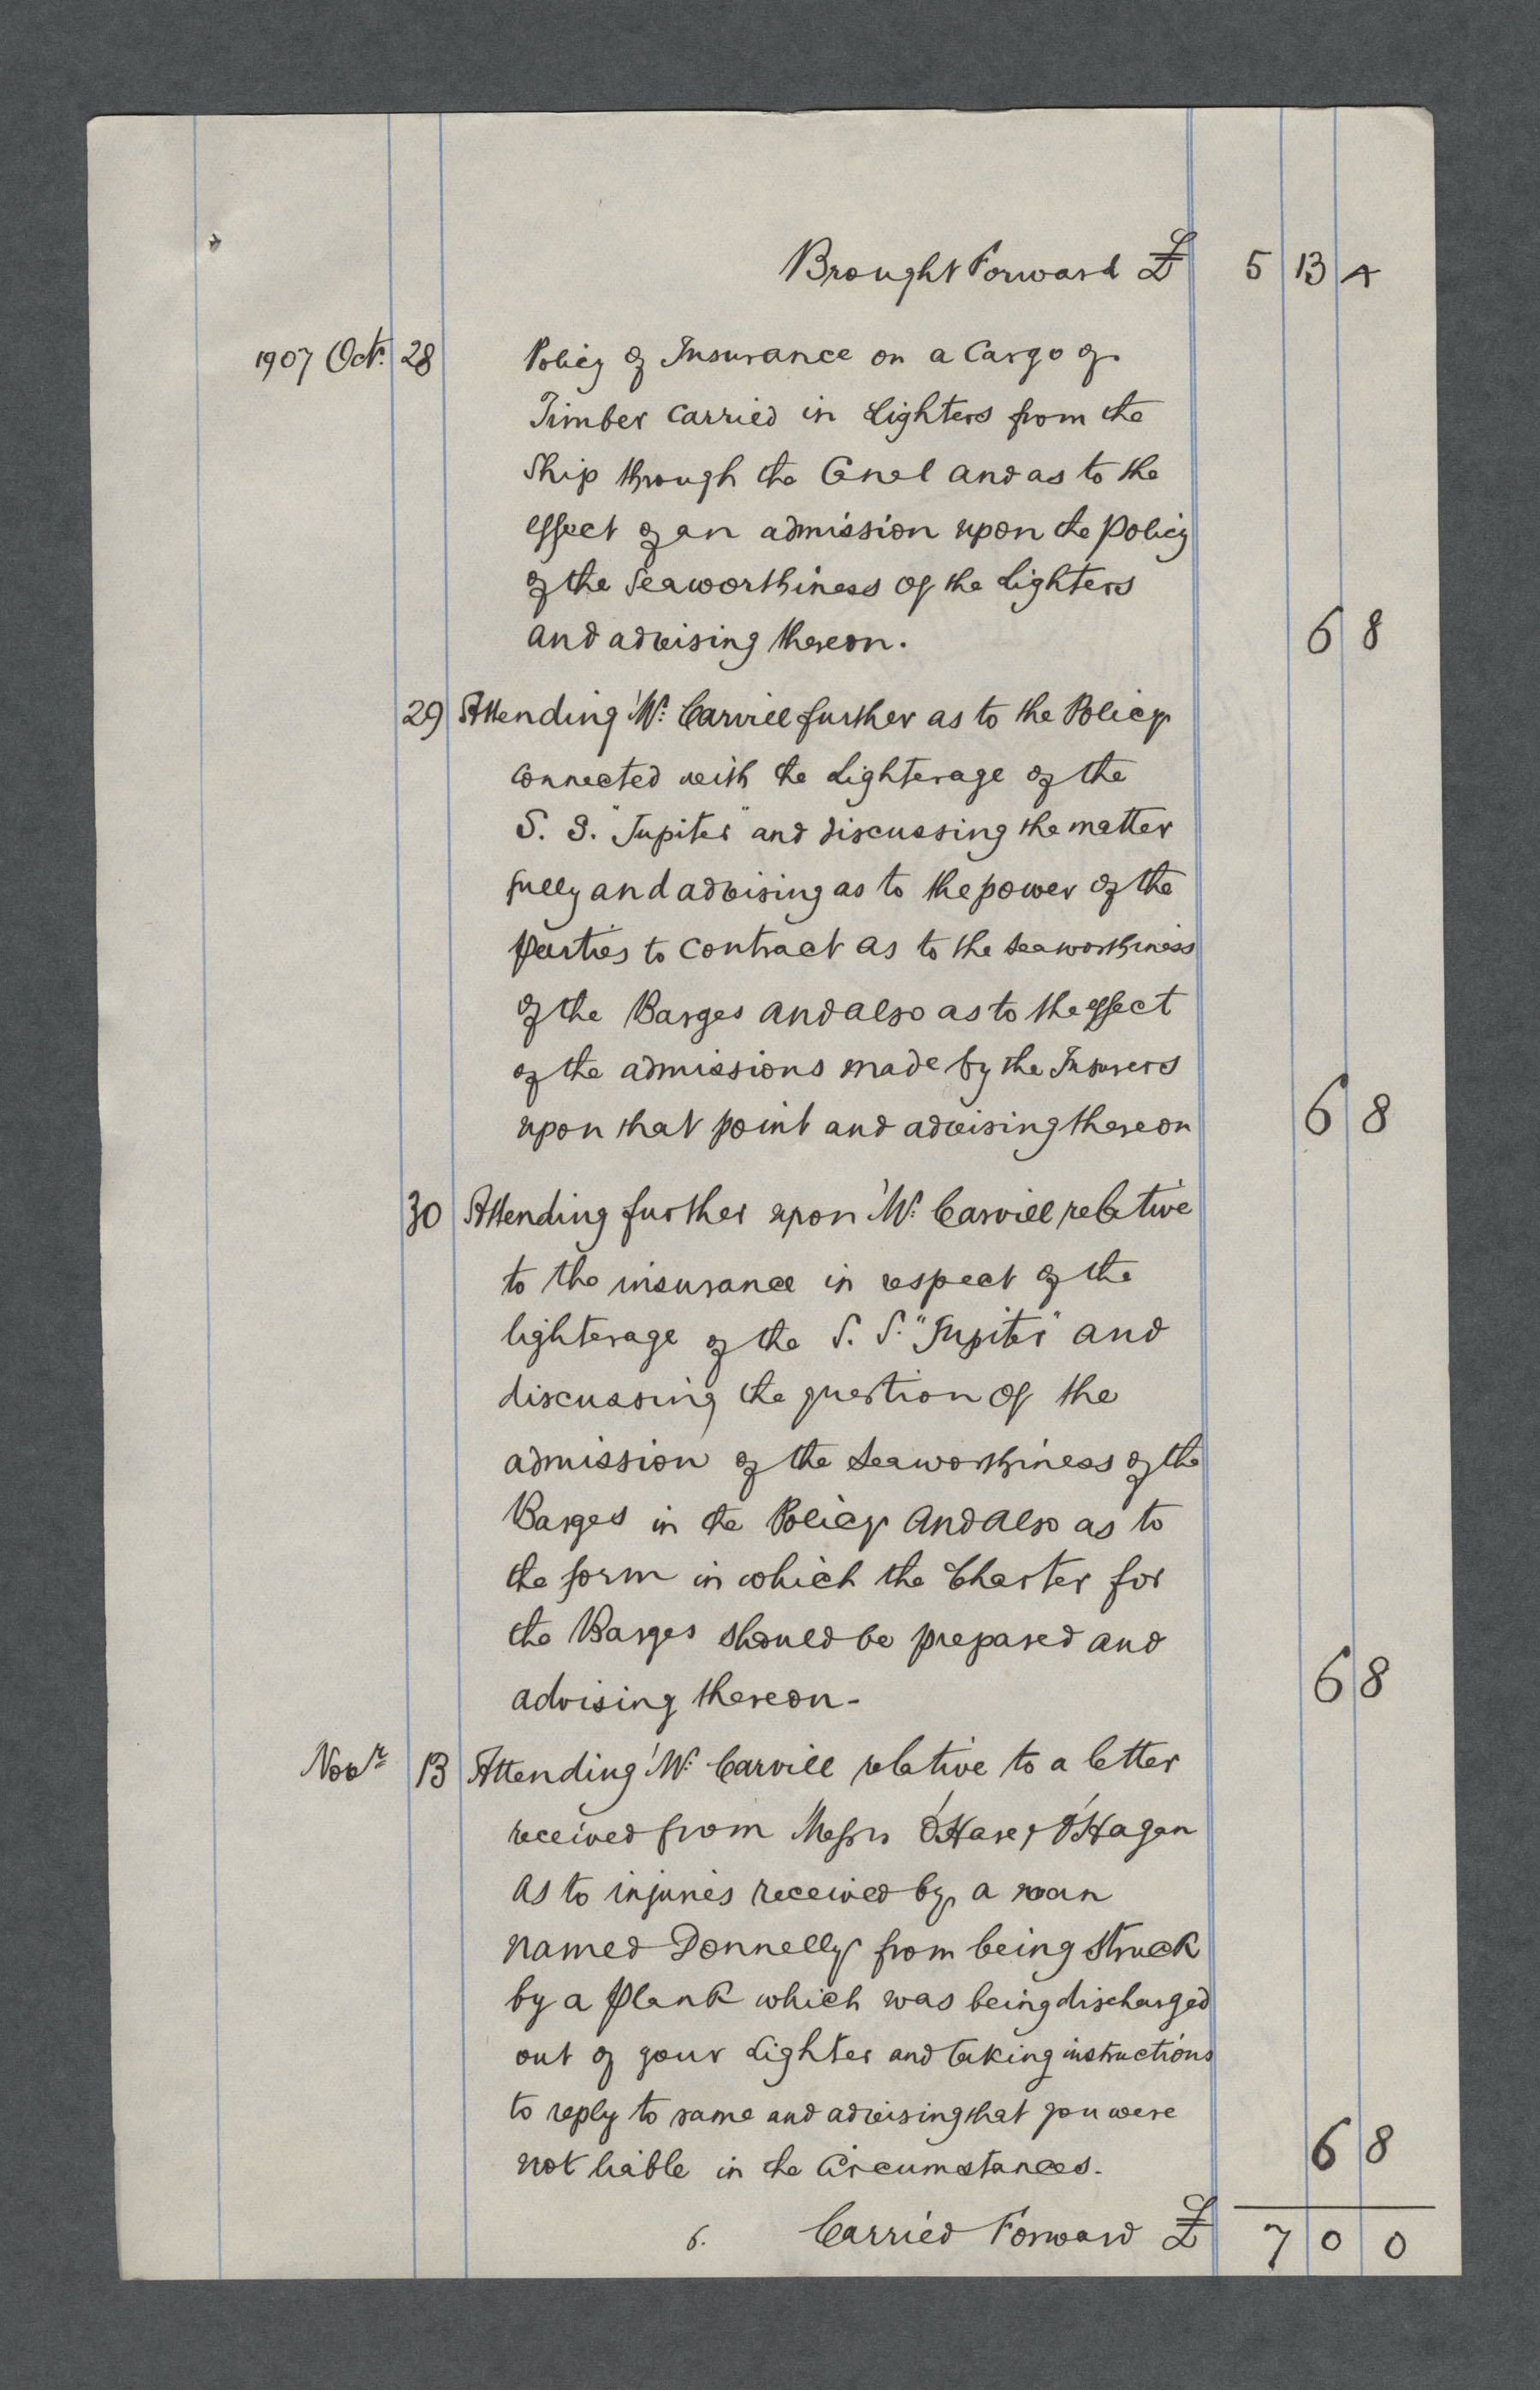 Brought Forward £ 5 13 4
1907 Octr. 28 Policy of Insurance on a Cargo of
Timber carried in Lighters from the
Ship through the Canal and as to the
effect of an admission upon the Policy
of the Seaworthiness of the Lighters
and advising thereon. 6 8
29 Attending Mr. Carvill further as to the Policy
connected with the Lighterage of the
S. S. "Jupiter" and discussing the matter
fully and advising as to the power of the
parties to contract as to the seaworthiness
of the Barges and also as to the effect
of the admissions made by the Insurers
upon that point and advising thereon 6 8
30 Attending further upon Mr. Carvill relative
to the insurance in respect of the
lighterage of the S. S. "Jupiter" and
discussing the question of the
admission of the Seaworthiness of the
Barges in the Policy and also as to
the form in which the Charter for
the Barges should be prepared and
advising thereon - 6 8
Novr 13 Attending Mr. Carvill relative to a letter
received from Messrs O'Hare & O'Hagan
as to injuries received by a man
named Donnelly from being struck
by a plank which was being discharged
out of your Lighter and taking instructions
to reply to same and advising that you were
not liable in the Circumstances. 6 8
6. Carried Forward £ 7 0 0